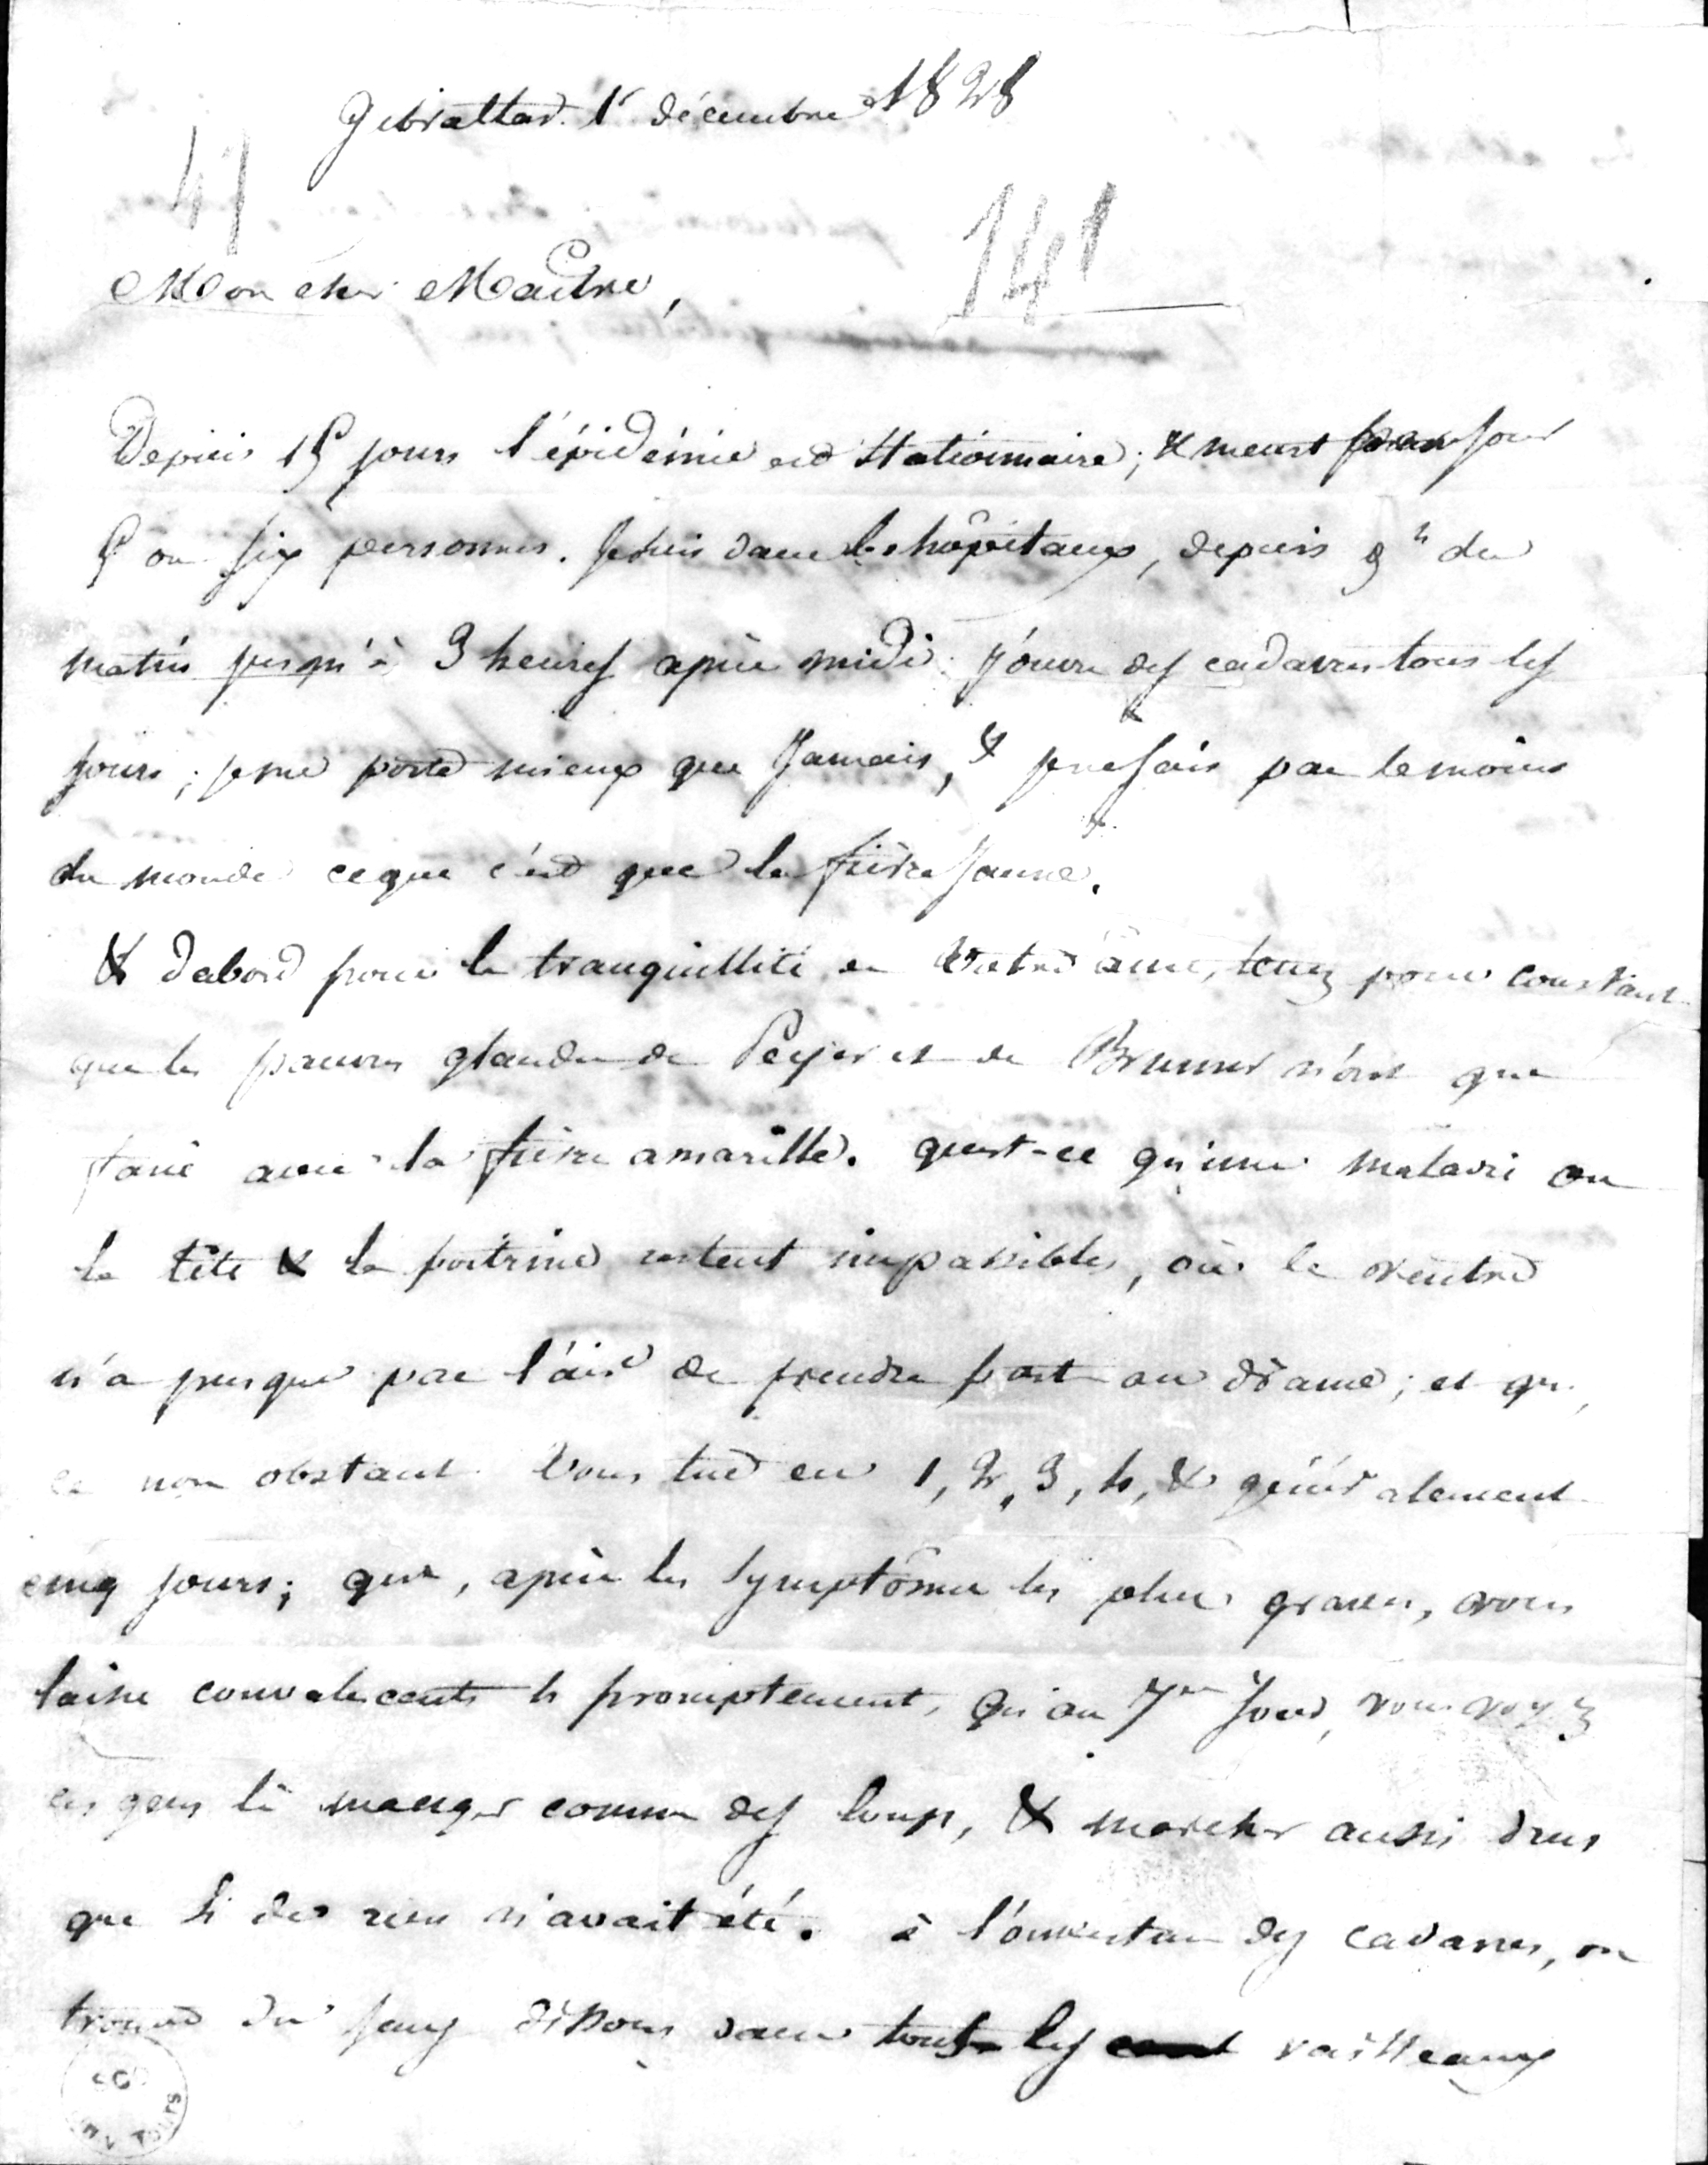 Gibraltar. 1r décembre 1828
41
141
Mon cher Maître,
Depuis 15 jours l'épidémie est stationnaire; & meurt par jour
5 ou six personnes. Je suis dans les hôpitaux, depuis 9h du
matin jusqu'à 3 heures après midi. J'ouvre des cadavres tous les
jours; je me porte mieux que jamais, & je ne sais pas le moins
du monde ce que c'est que la fièvre jaune.
& d'abord pour la tranquillité de votre âme, tenez pour constant
que les pauvres glandes de Peyer et de Brunner n'ont que
faire avec la fièvre amarille. qu'est-ce qu'une maladie ou
la tête & la poitrine restent impassibles, où le ventre
n'a presque pas l'air de prendre part au drame; et qui,
ce non obstant vous tue en 1, 2, 3, 4, & généralement
cinq jours; qui, après les symptômes les plus graves, vous
laisse convalescents si promptement, qu'au 7me jour, vous voyez
ces gens là manger comme des loups, & marcher aussi drus
que si de rien n'avait été. à l'ouverture des cadavres, on
trouve du sang dissous dans tous les vaisseaux
SCD
UNIV TOURS